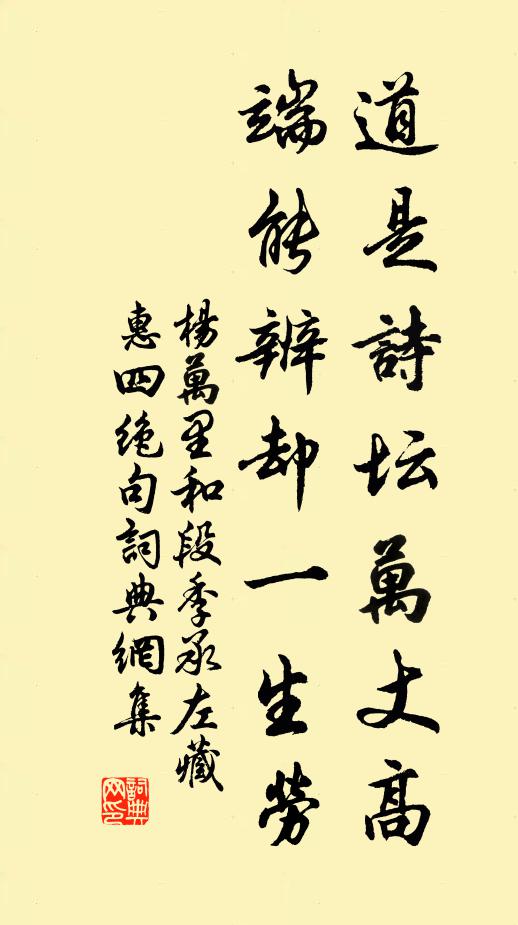 道是詩坛萬丈高
端能辨却一生勞
楊萬里和段季承左藏
惠四绝句詞典網集
詞典网印